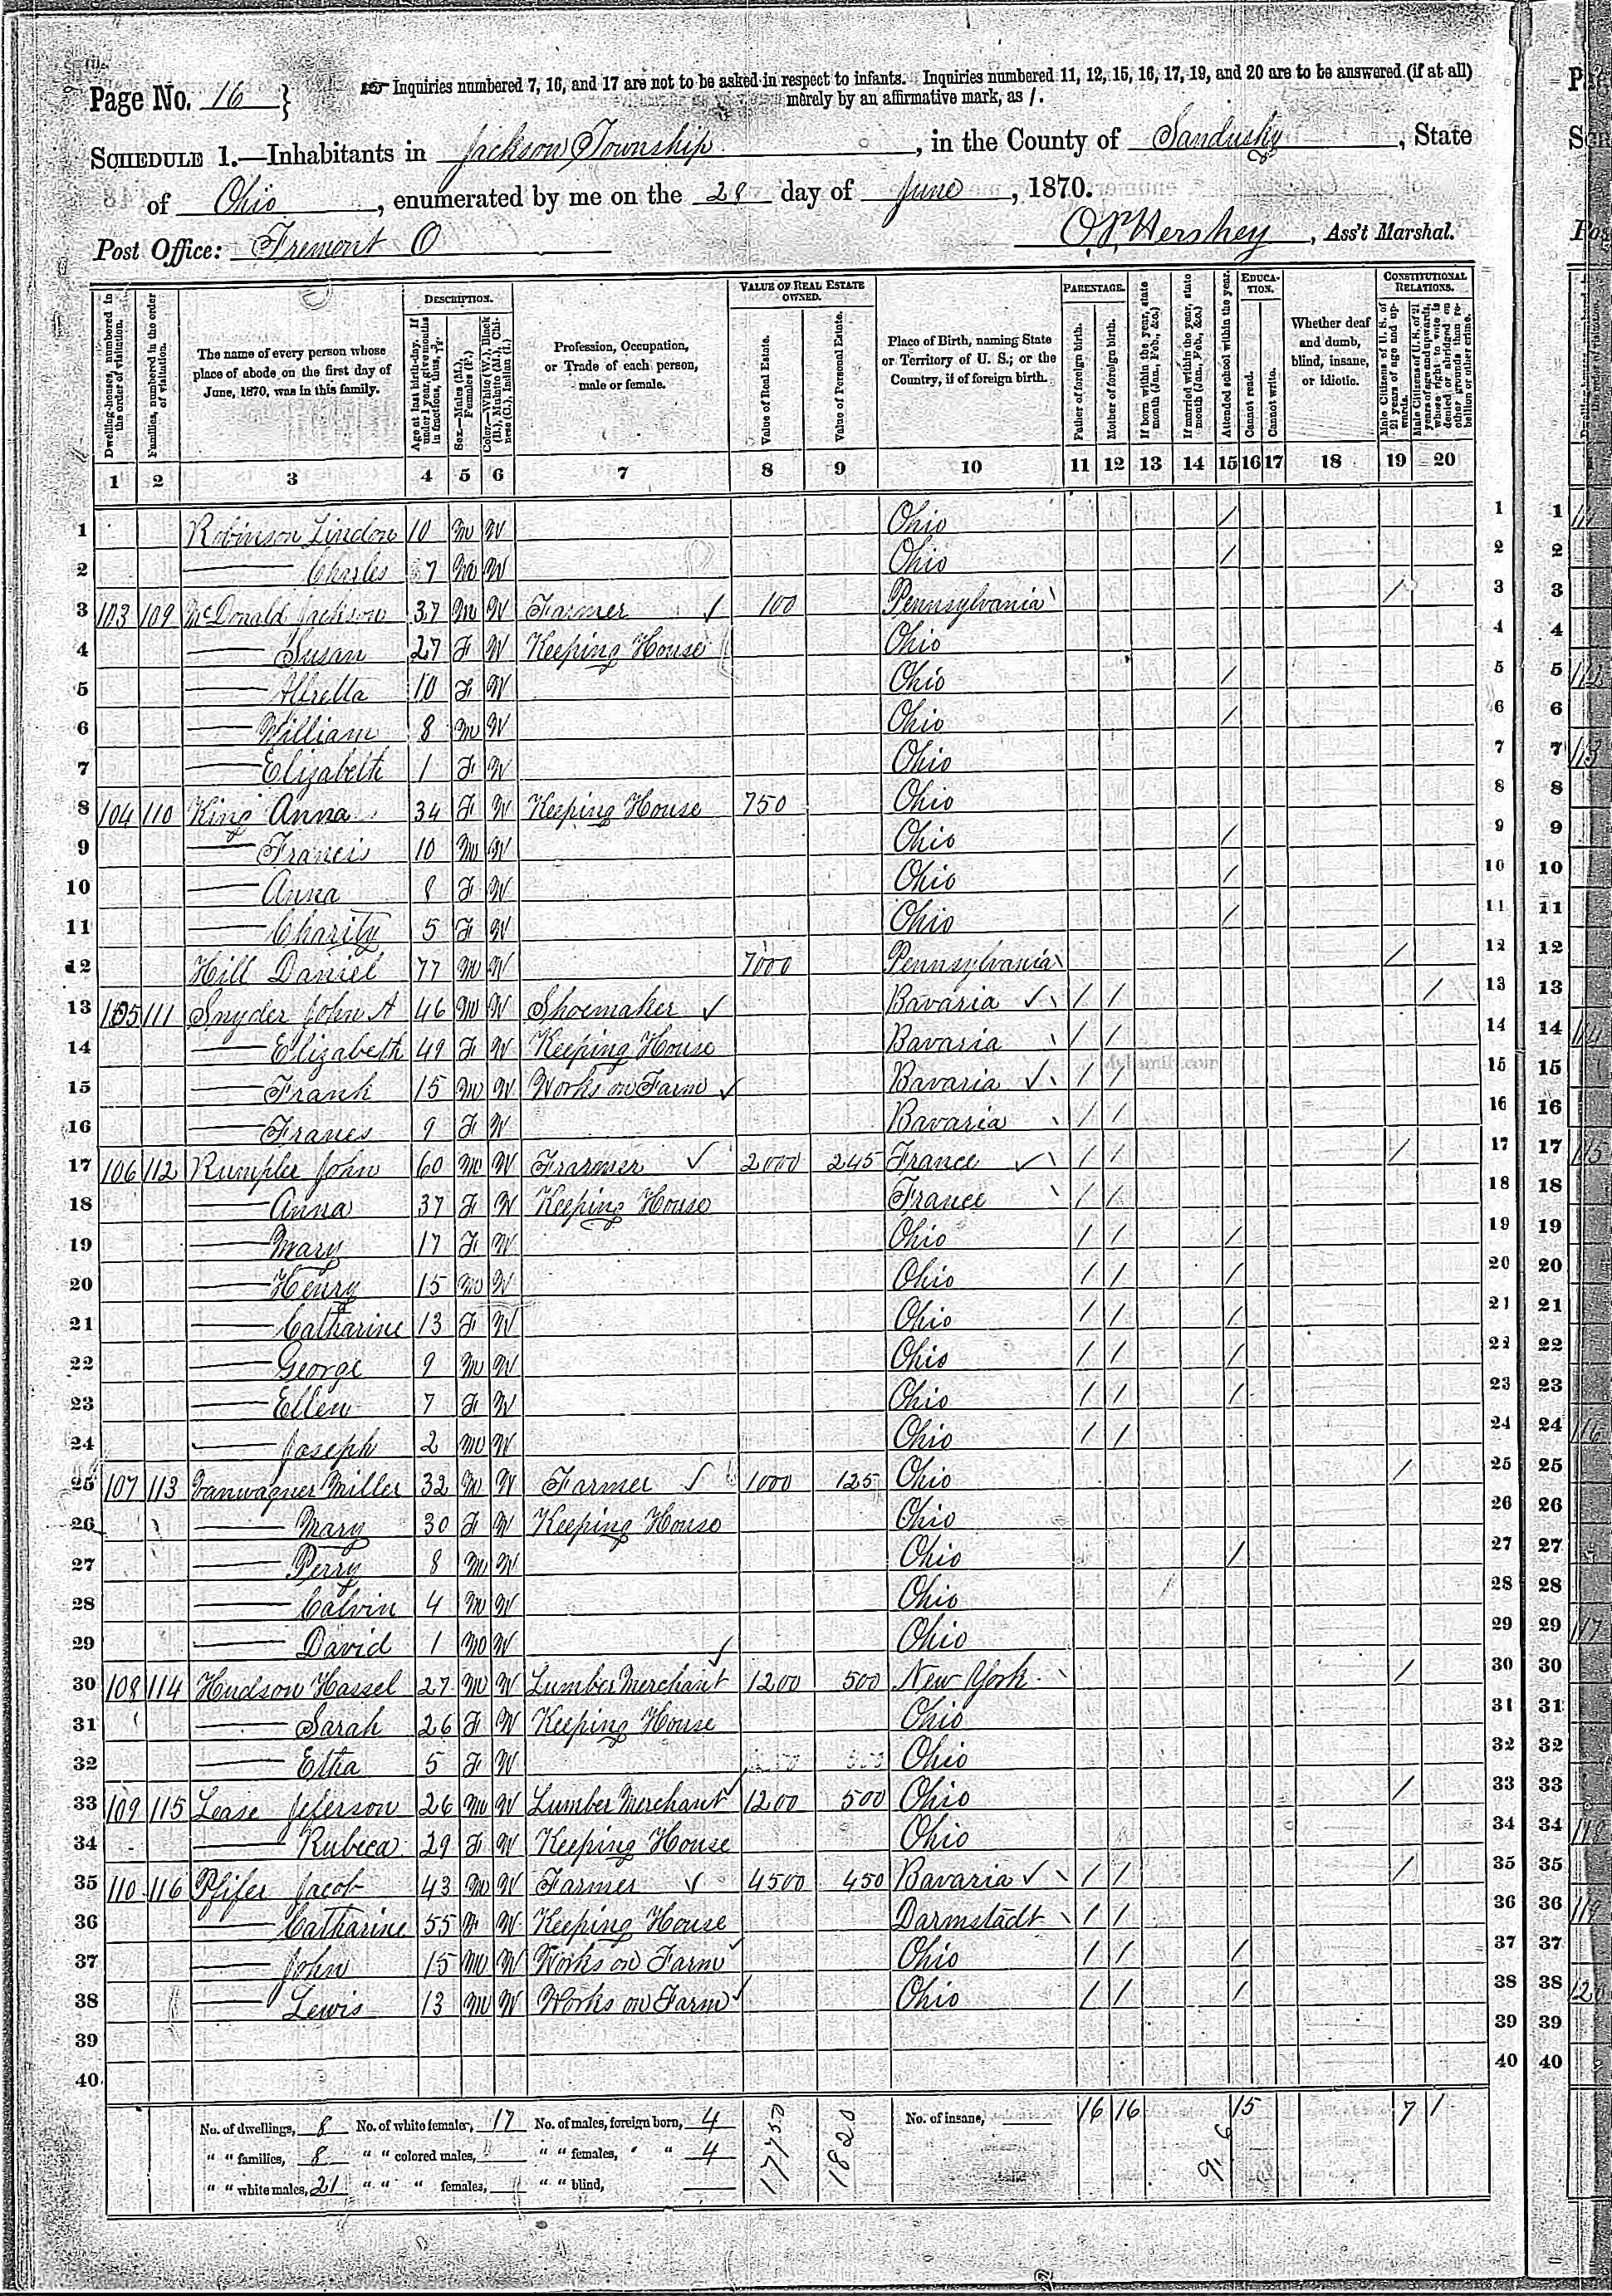 Page No. 16 }
Inquiries numbered 7, 16, and 17 are not to be asked in respect to infants. Inquiries numbered 11, 12, 15, 16, 17, 19, and 20 are to be answered (if at all)
merely by an affirmative mark, as /.
SCHEDULE 1.—Inhabitants in Jackson Township, in the County of Sandusky, State
of Ohio, enumerated by me on the 28 day of June, 1870.
Post Office: Fremont O
O. P. Hershey, Ass't Marshal.
Dwelling-houses, numbered in the order of visitation.
Families, numbered in the order of visitation.
The name of every person whose place of abode on the first day of June, 1870, was in this family.
DESCRIPTION.
Age at last birth-day. If under 1 year, give months in fractions, thus, 3/12.
Sex.—Males (M.), Females (F.)
Color.—White (W.), Black (B.), Mulatto (M.), Chinese (C.), Indian (I.)
Profession, Occupation, or Trade of each person, male or female.
VALUE OF REAL ESTATE OWNED.
Value of Real Estate.
Value of Personal Estate.
Place of Birth, naming State or Territory of U. S.; or the Country, if of foreign birth.
PARENTAGE.
Father of foreign birth.
Mother of foreign birth.
If born within the year, state month (Jan., Feb., &c.)
If married within the year, state month (Jan., Feb., &c.)
Attended school within the year.
EDUCATION.
Cannot read.
Cannot write.
Whether deaf and dumb, blind, insane, or idiotic.
CONSTITUTIONAL RELATIONS.
Male Citizens of U. S. of 21 years of age and upwards.
Male Citizens of U. S. of 21 years of age and upwards, whose right to vote is denied or abridged on other grounds than rebellion or other crime.
1 2 3 4 5 6 7 8 9 10 11 12 13 14 15 16 17 18 19 20
1 Robinson Lindon 10 M W Ohio / 1
2 —— Charles 7 M W Ohio / 2
3 103 109 McDonald Jackson 37 M W Farmer ✓ 100 Pennsylvania / 3
4 —— Susan 27 F W Keeping House Ohio 4
5 —— Alfretta 10 F W Ohio / 5
6 —— William 8 M W Ohio / 6
7 —— Elizabeth 1 F W Ohio 7
8 104 110 King Anna 34 F W Keeping House 750 Ohio 8
9 —— Francis 10 M W Ohio / 9
10 —— Anna 8 F W Ohio / 10
11 —— Charity 5 F W Ohio / 11
12 Hill Daniel 77 M W 7000 Pennsylvania / 12
13 105 111 Snyder John A 46 M W Shoemaker ✓ Bavaria ✓ / / / 13
14 —— Elizabeth 49 F W Keeping House Bavaria / / 14
15 —— Frank 15 M W Works on Farm ✓ Bavaria ✓ / / 15
16 —— Franes 9 F W Bavaria / / 16
17 106 112 Rumpler John 60 M W Frarmer ✓ 2000 245 France ✓ / / / 17
18 —— Anna 37 F W Keeping House France / / 18
19 —— Mary 17 F W Ohio / / / 19
20 —— Henry 15 M W Ohio / / / 20
21 —— Catharine 13 F W Ohio / / / 21
22 —— George 9 M W Ohio / / / 22
23 —— Ellen 7 F W Ohio / / / 23
24 —— Joseph 2 M W Ohio / / 24
25 107 113 Vanwagner Miller 32 M W Farmer ✓ 1000 125 Ohio / 25
26 —— Mary 30 F W Keeping House Ohio 26
27 —— Perry 8 M W Ohio / 27
28 —— Calvin 4 M W Ohio 28
29 —— David 1 M W Ohio 29
30 108 114 Hudson Hassel 27 M W Lumber Merchant ✓ 1200 500 New York / 30
31 —— Sarah 26 F W Keeping House Ohio 31
32 —— Etha 5 F W Ohio 32
33 109 115 Lease Jeferson 26 M W Lumber Merchant ✓ 1200 500 Ohio / 33
34 —— Rubeca 29 F W Keeping House Ohio 34
35 110 116 Pfifer Jacob 43 M W Farmer ✓ 4500 450 Bavaria ✓ / / / 35
36 —— Catharine 55 F W Keeping House Darmstadt / / 36
37 —— John 15 M W Works on Farm ✓ Ohio / / / 37
38 —— Lewis 13 M W Works on Farm ✓ Ohio / / / 38
39 39
40 40
No. of dwellings, 8 No. of white females, 17 No. of males, foreign born, 4 17750 1820 No. of insane, 16 16 15 7 1
" " families, 8 " " colored males, " " females, " " 4
" " white males, 21 " " " females, " " blind,